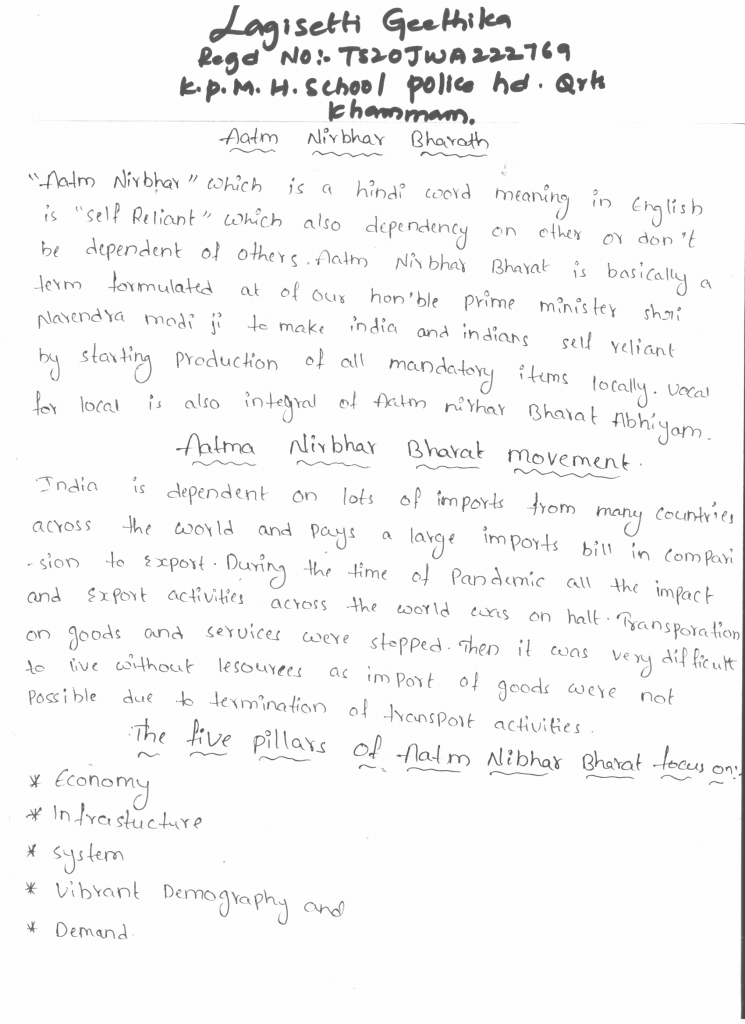 Lagisetti Geethika
Regd NO:- TS20JWA222769
K.P.M.H. School police hd. Qrts
Khammam.
Aatm Nirbhar Bharath
"Aatm Nirbhar" which is a hindi word meaning in English
is "self Reliant" which also dependency on other or don't
be dependent of others. Aatm Nirbhar Bharat is basically a
term formulated at of our hon'ble prime minister shri
Narendra modi ji to make india and indians self reliant
by starting production of all mandatory items locally. vocal
for local is also integral of Aatm nirhar Bharat Abhiyam.
Aatma Nirbhar Bharat movement.
India is dependent on lots of imports from many countries
across the world and pays a large imports bill in compari
-sion to Export. During the time of Pandemic all the impact
and Export activities across the world was on halt. Transporation
on goods and services were stopped. Then it was very difficult
to live without lesources as import of goods were not
possible due to termination of transport activities.
The five pillars of Aatm Nibhar Bharat focus on:-
* Economy
* Infrastucture
* System
* Vibrant Demography and
* Demand.